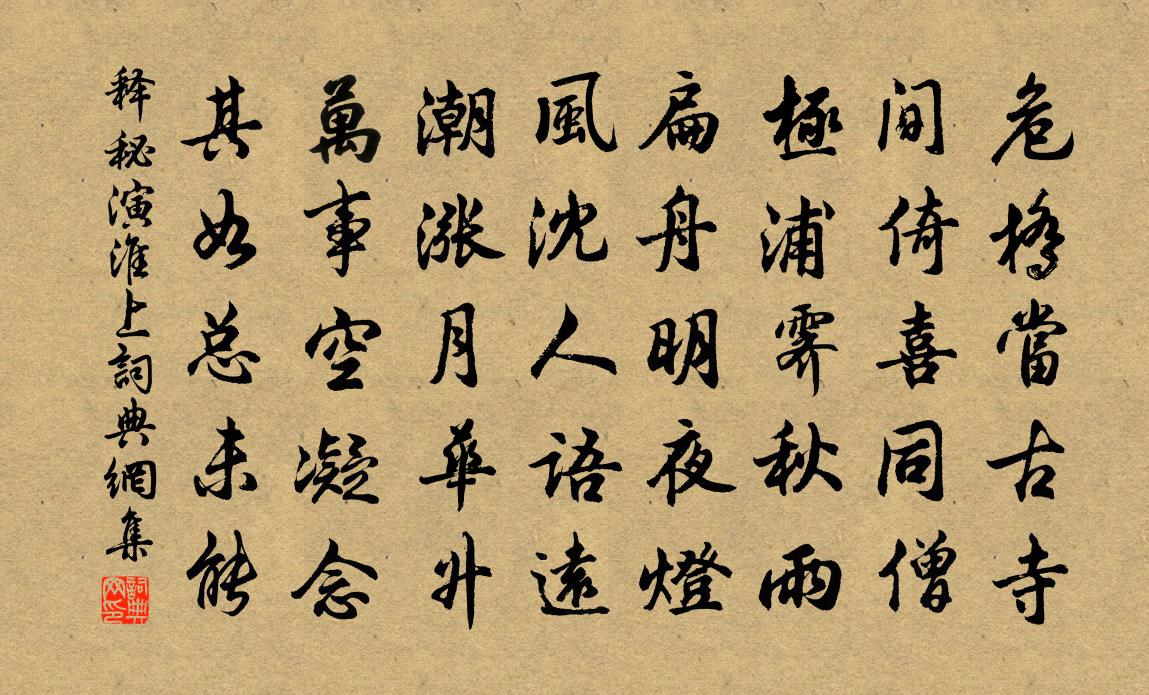 危橋當古寺
间倚喜同僧
極浦霽秋雨
扁舟明夜燈
風沈人語遠
潮漲月華升
萬事空凝念
其如总未能
释秘演淮上詞典網集
詞典
网印